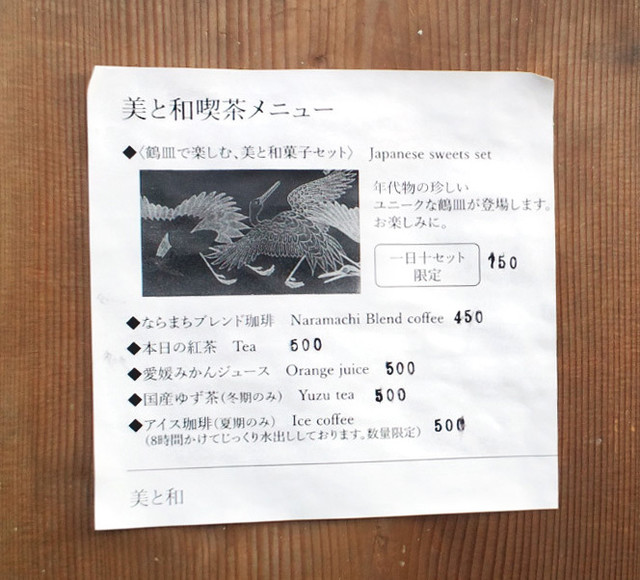 美と和喫茶メニュー
◆〈鶴皿で楽しむ、美と和菓子セット〉 Japanese sweets set
年代物の珍しい
ユニークな鶴皿が登場します。
お楽しみに。
一日十セット
限定
◆ならまちブレンド珈琲 Naramachi Blend coffee 450
◆本日の紅茶 Tea 500
◆愛媛みかんジュース Orange juice 500
◆国産ゆず茶(冬期のみ) Yuzu tea 500
◆アイス珈琲(夏期のみ) Ice coffee 500
(8時間かけてじっくり水出ししております。数量限定)
美と和